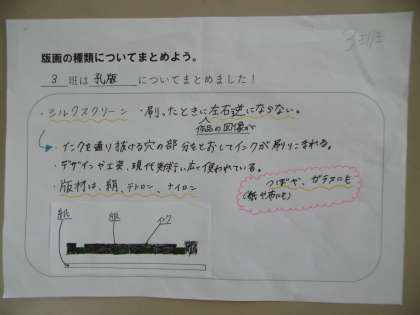 3班
版画の種類についてまとめよう。
3 班は 孔版 についてまとめました！
・シルクスクリーン ・刷ったときに左右逆にならない。
作品の図像が
インクを通り抜ける穴の部分をとおしてインクが刷りこまれる。
・デザインや工芸、現代美術に広く使われている。
・版材は、絹、テトロン、ナイロン
つぼや、ガラスにも
(紙や布にも)
紙 版 インク